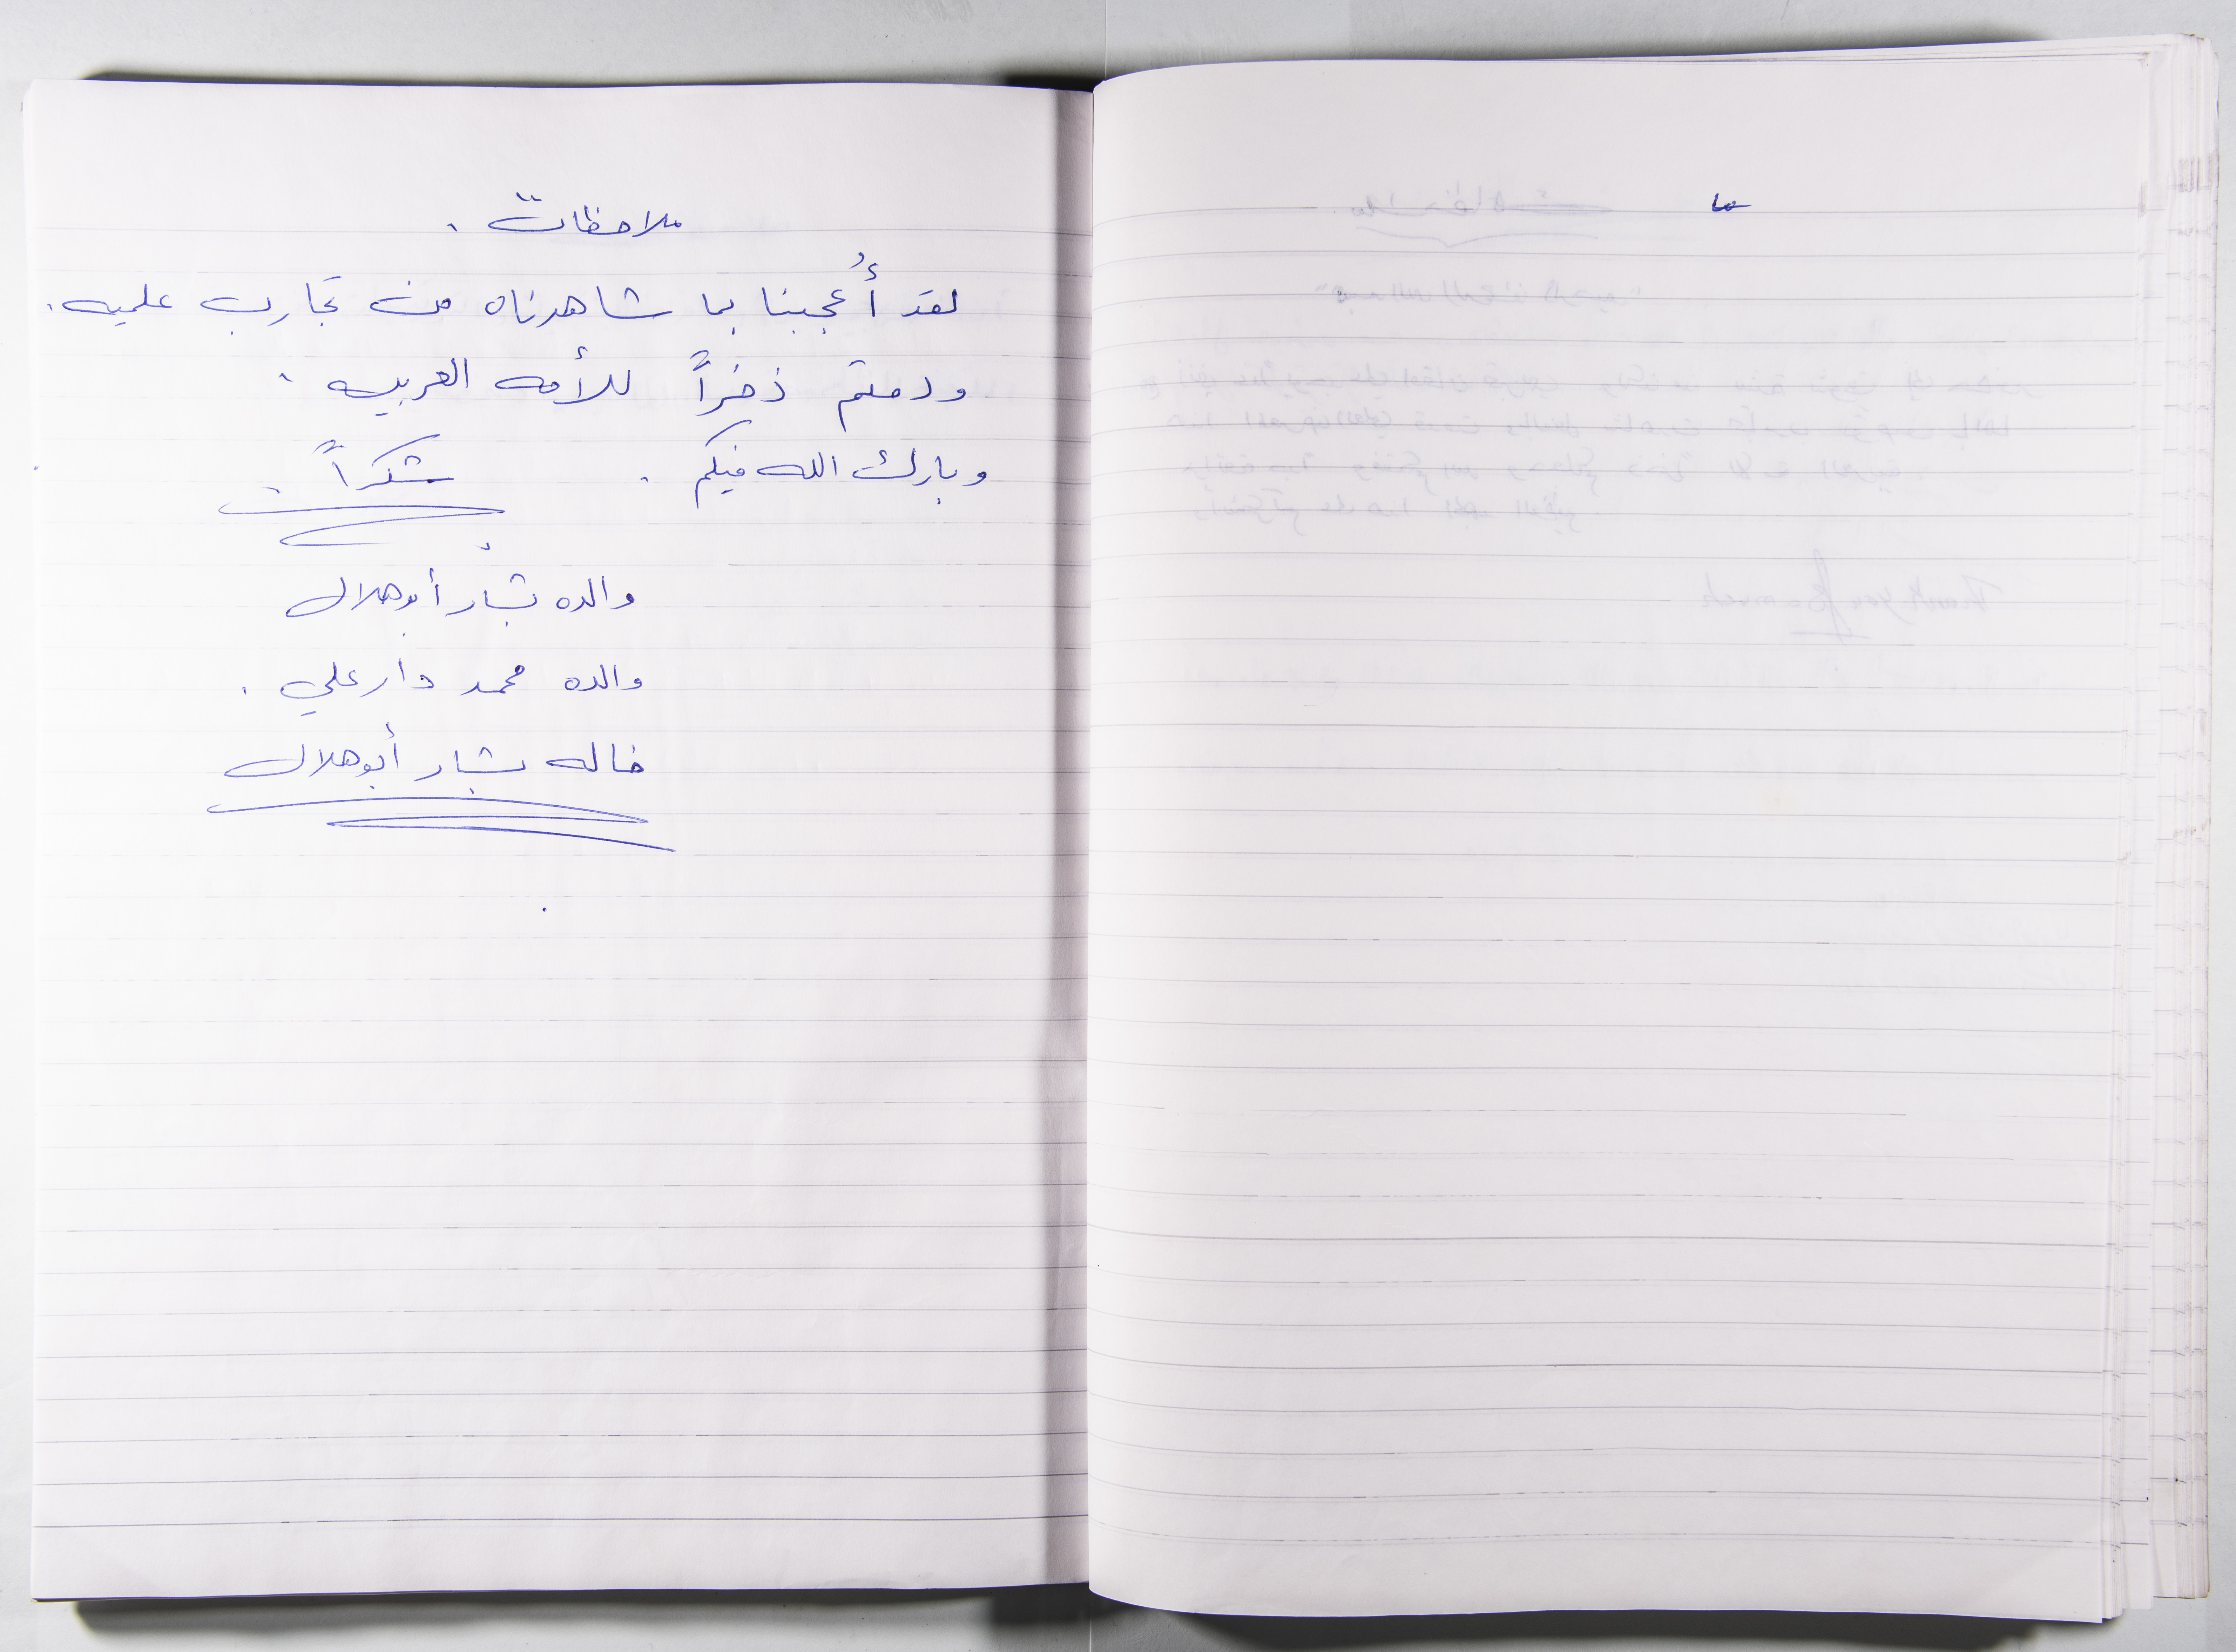 ملاحظات .
لقد أُعجبنا بما شاهدناه من تجارب علميه .
ودمتم ذخراً للأمه العربيه .
وبارك الله فيكم . شكراً .
والده بشار أبوهلال
والده محمد دار علي .
خاله بشار أبوهلال